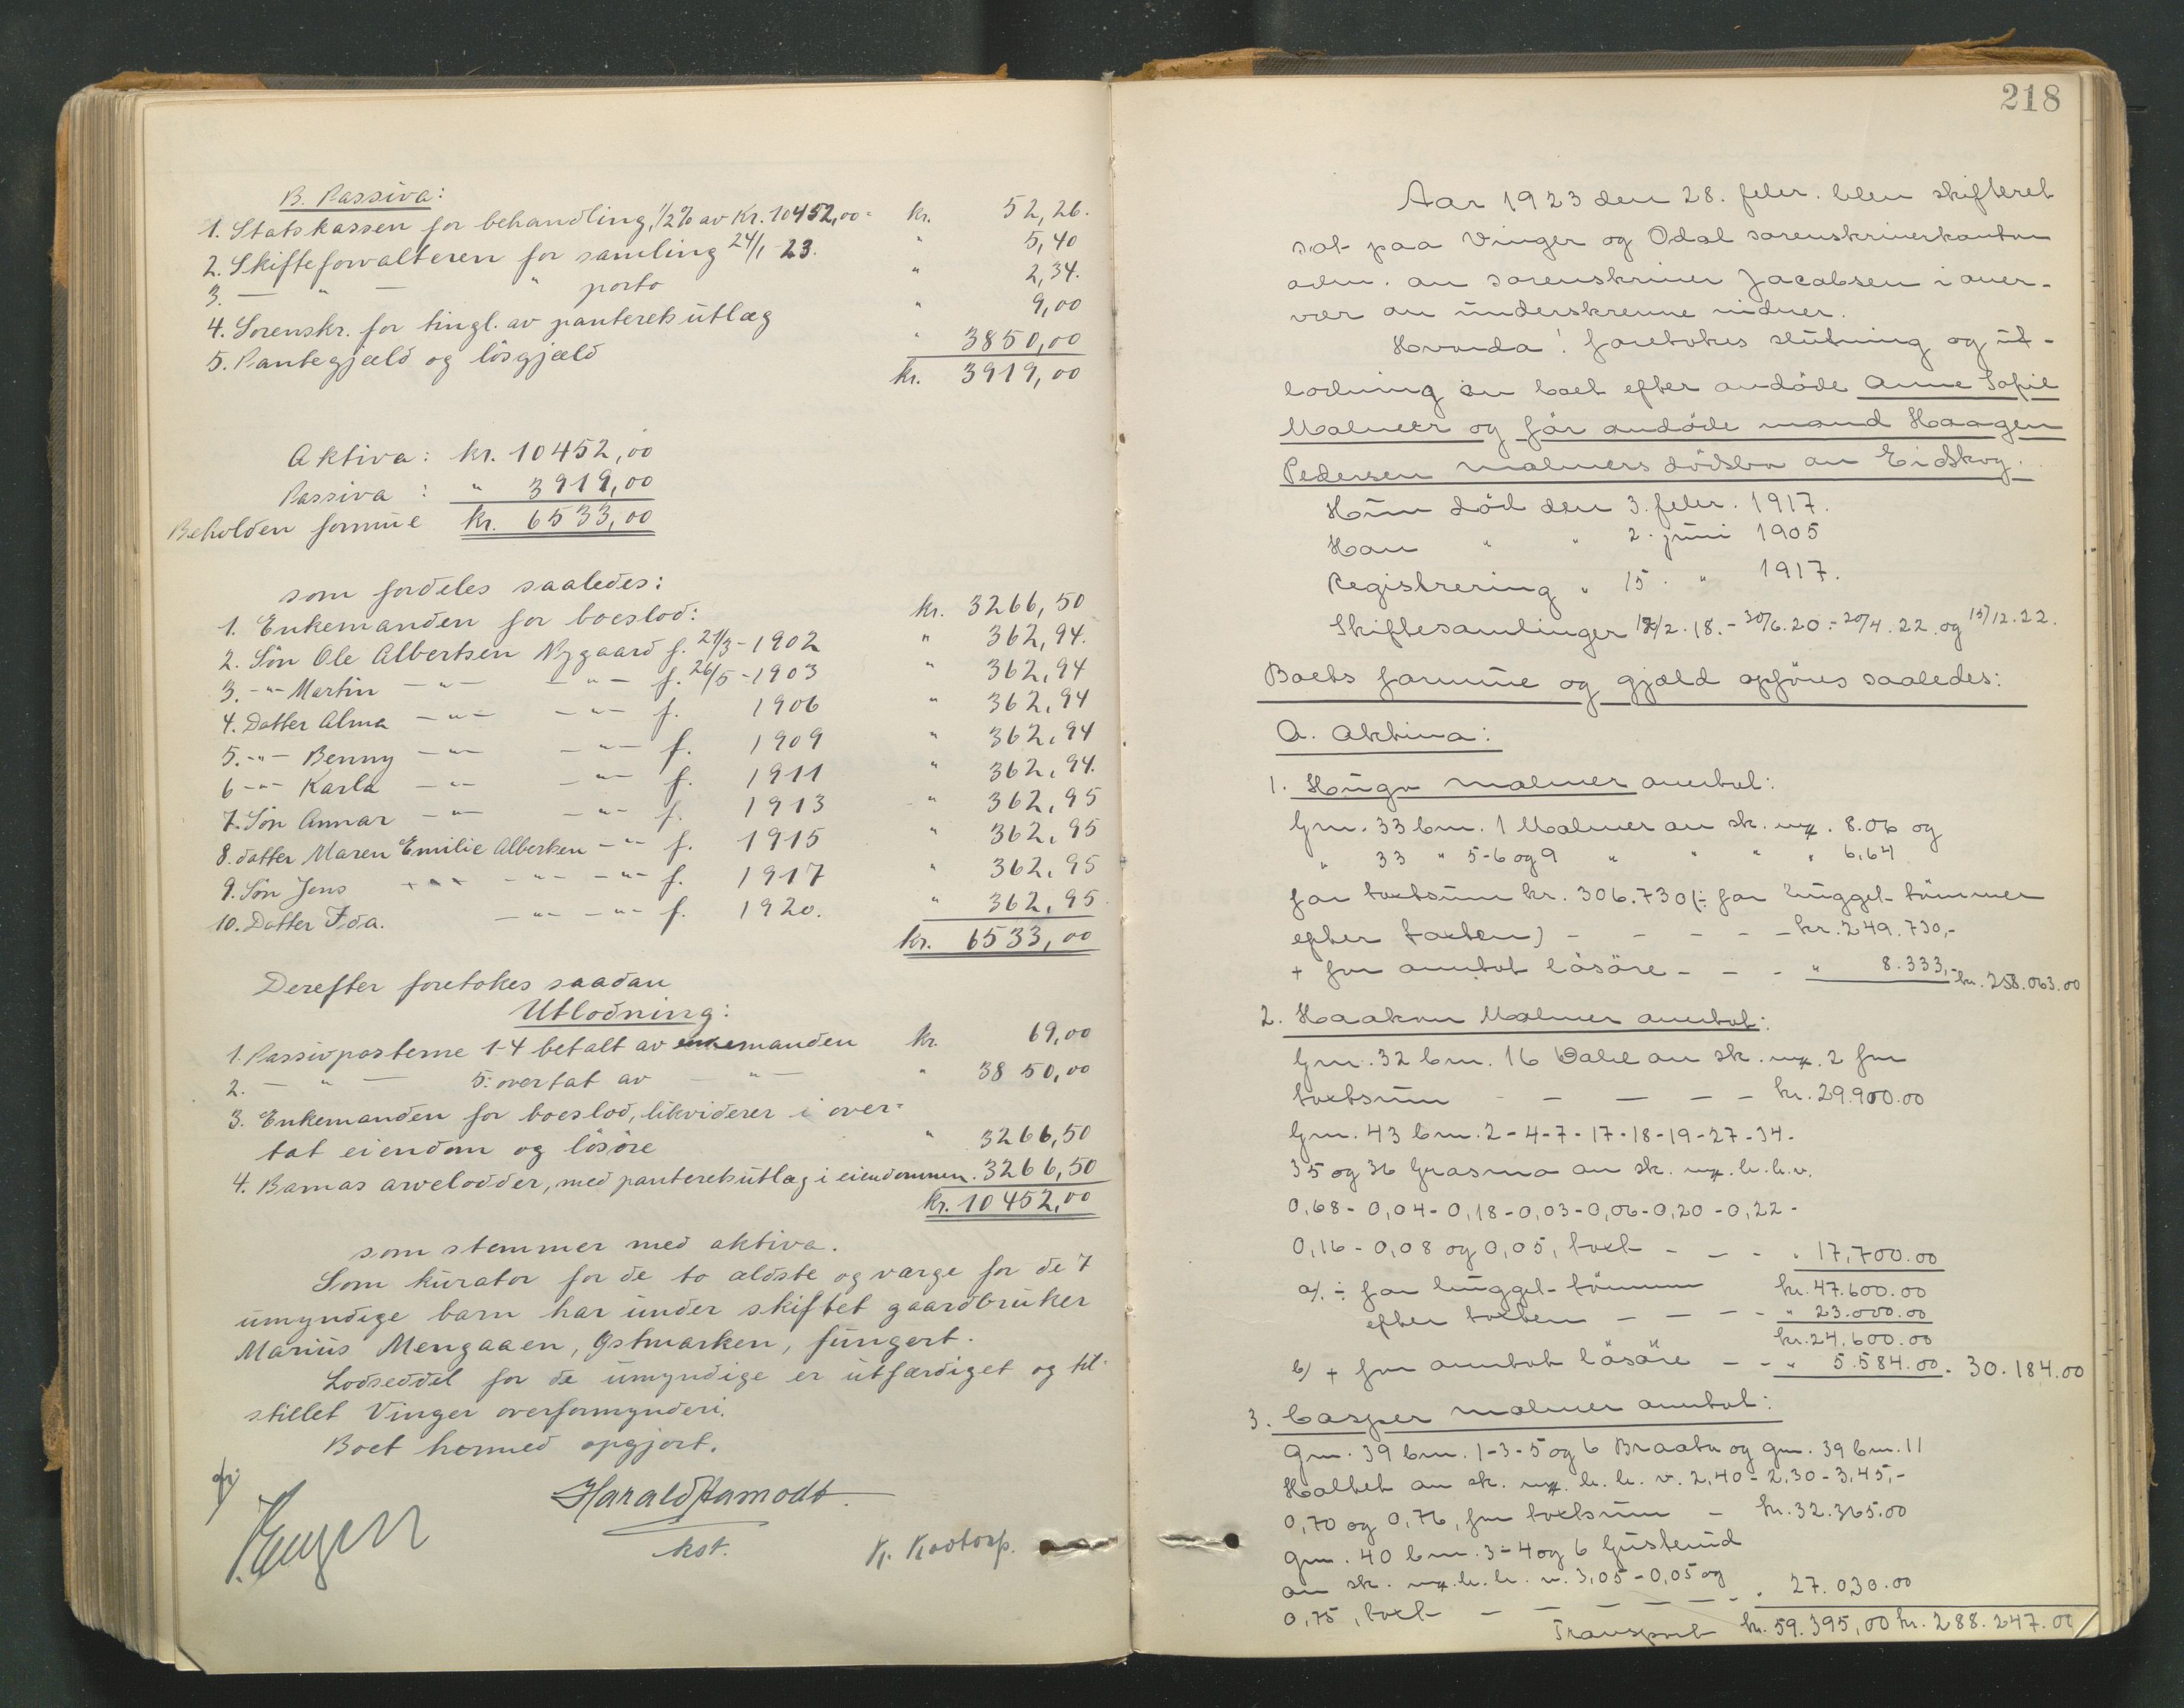 B. Passiva:
1. Statskassen for behandling, 1/2% av kr. 10452,00 = kr. 52,26.
2. Skifteforvalteren for samling 24/1-23. " 5,40
3. — " — " porto " 2,34.
4. Sorenskr. for tingl. av panteretsutlæg " 9,00
5. Pantegjæld og lösgjæld " 3850,00
kr. 3919,00
Aktiva: kr. 10452,00
Passiva : " 3919,00
Beholden formue kr. 6533,00
som fordeles saaledes:
1. Enkemanden for boeslod: kr. 3266,50
2. Sön Ole Albertsen Nygaard f. 21/3-1902 " 362,94.
3. -"- Martin -"- -"- f. 26/5-1903 " 362,94
4. Datter Alma -"- -"- f. 1906 " 362,94
5. -"- Benny -"- -"- f. 1909 " 362,94
6 -"- Karla -"- -"- f. 1911 " 362,94.
7. Sön Annar -"- -"- f. 1913 " 362,95
8. datter Maren Emilie Albertsen -"- f. 1915 " 362,95
9. Sön Jens -"- -"- f. 1917 " 362,95
10. Datter Ida. -"- -"- f. 1920. " 362,95.
kr. 6533,00
Derefter foretokes saadan
Utlodning:
1. Passivposterne 1-4 betalt av enkemanden kr. 69,00
2. — " — 5: overtat av — " — " 3850,00
3. Enkemanden for boeslod, likviderer i over=
tat eiendom og lösöre " 3266,50
4. Barnas arvelodder, med panteretsutlæg i eiendommen. 3266,50
kr. 10452,00
som stemmer med aktiva.
Som kurator for de to ældste og værge for de 7
umyndige barn har under skiftet gaardbruker
Marius Mengaaen, Östmarken, fungert.
Lodseddel for de umyndige er utfærdiget og til-
stillet Vinger overformynderi.
Boet hermed opgjort.
Harald Aamodt.
kst.
K. Kostorp.
218
Aar 1923 den 28. febr. blev skifteret
sat paa Vinger og Odal sorenskriverkontor
adm. av sorenskriver Jacobsen i over-
vær av underskrevne vidner.
Hvorda! foretokes slutning og ut-
lodning av boet efter avdöde Anne Sofie
Malmer og för avdöde mand Haagen
Pedersen Malmers dödsbo av Eidskog.
Hun död den 3. febr. 1917.
Han " " 2. juni 1905
Registrering " 15. " 1917.
Skiftesamlinger 12/2.18. - 30/6.20 - 20/4.22. og 15/12.22.
Boets formue og gjæld opföres saaledes:
A. Aktiva:
1. Hugo Malmer overtat:
Gm. 33 bm. 1 Malmer av sk. mk. 8.06 og
" 33 " 5-6 og 9 " " " " 6,64
for takstsum kr. 306.730 (÷ for hugget tömmer
efter taksten) - - - - - kr. 249.730,-
+ for overtat lösöre - - - " 8.333,- kr. 258.063.00
2. Haakon Malmer overtat:
Gm. 32 bm. 16 Dale av sk. mk. 2 for
takstsum - - - - - kr. 29.900.00
Gm. 43 bm. 2-4-7-17-18-19-27-34-
35 og 36 Grasmo av sk. mk. h.h.v.
0,68-0,04-0,18-0,03-0,06-0,20-0,22-
0,16-0,08 og 0,05, takst - - - " 17,700.00
a). ÷ for hugget tömmer kr. 47.600.00
efter taksten - - - - " 23.000.00
kr. 24.600.00
b) + for overtat lösöre - - " 5.584.00 " 30.184.00
3. Casper Malmer overtat:
Gm. 39 bm. 1-3-5 og 6 Braaten og gm. 39 bm. 11
Holtet av sk. mk. h.h.v. 2,40-2,30-3,45,-
0,70 og 0,76, for takstsum - kr. 32.365.00
Gm. 40 bm. 3-4 og 6 Gusterud
av sk. mk. h.h.v. 3,05-0,05 og
0,75, takst - - - - - - " 27.030.00
Transport kr. 59.395,00 kr. 288.247.00